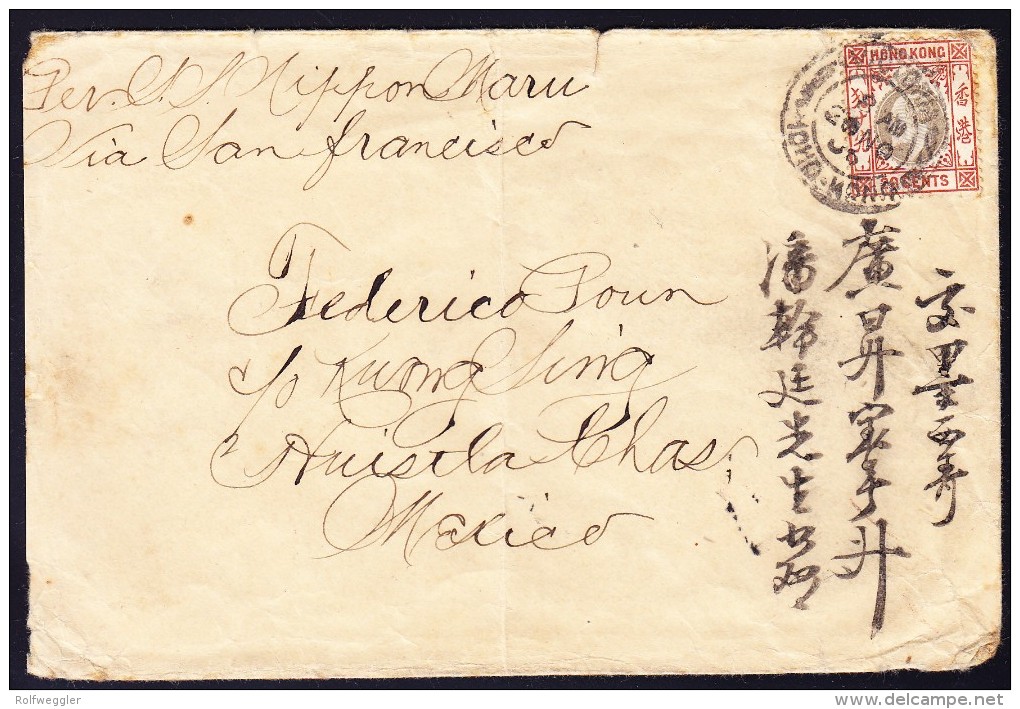 Per. S. S. Nippon Maru
Via San francisco
HONG KONG
香港
CENTS
HONG KONG
Federico Poun
c/o Kuong Sing
Huistla Chas
Mexico
交墨西哥
廣昇寶號升
潘幹廷先生台啟
Rolfweggler
http://www.delcampe.net